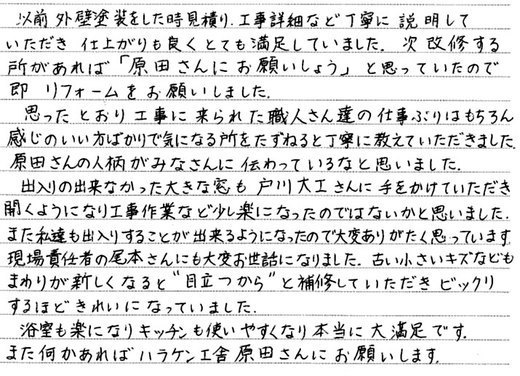 以前外壁塗装をした時見積り、工事詳細など丁寧に説明して
いただき仕上がりも良くとても満足していました。次改修する
所があれば「原田さんにお願いしよう」と思っていたので
即リフォームをお願いしました。
思ったとおり工事に来られた職人さん達の仕事ぶりはもちろん
感じのいい方ばかりで気になる所をたずねると丁寧に教えていただきました。
原田さんの人柄がみなさんに伝わっているなと思いました。
出入りの出来なかった大きな窓も戸川大工さんに手をかけていただき
開くようになり工事作業など少し楽になったのではないかと思いました。
また私達も出入りすることが出来るようになったので大変ありがたく思っています。
現場責任者の尾本さんにも大変お世話になりました。古い小さいキズなども
まわりが新しくなると"目立つから"と補修していただきビックリ
するほどきれいになっていました。
浴室も楽になりキッチンも使いやすくなり本当に大満足です。
また何かあればハラケン工舎原田さんにお願いします。